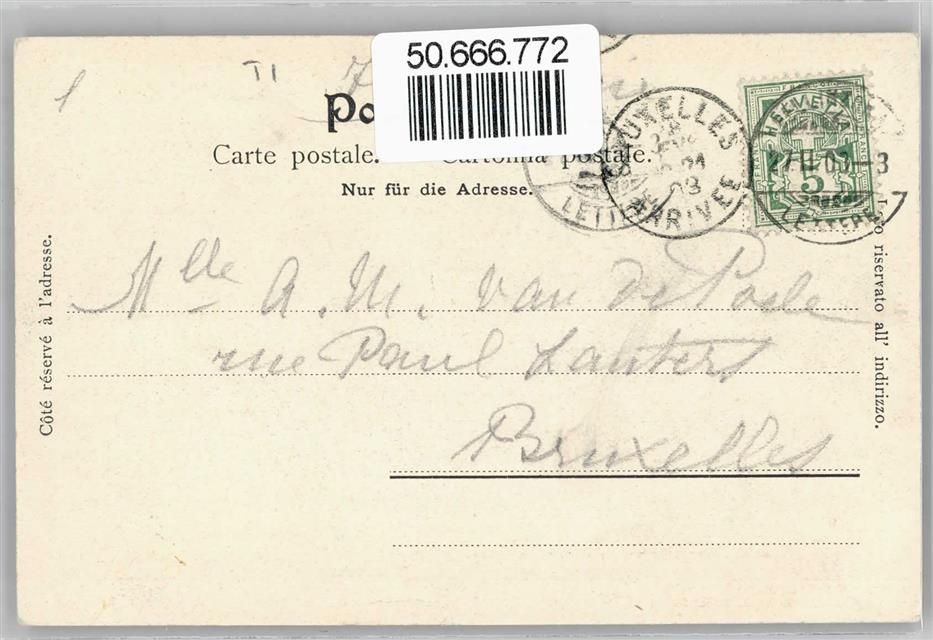 50.666.772
TI
Po
Carte postale. Cartolina postale.
Nur für die Adresse.
BRUXELLES
03
ARRIVEE
HELVETIA
5
27.II.03.-3
Côté réservé à l'adresse.
riservato all' indirizzo.
Mlle A. M. van de Poele
rue Paul Lauters
Bruxelles